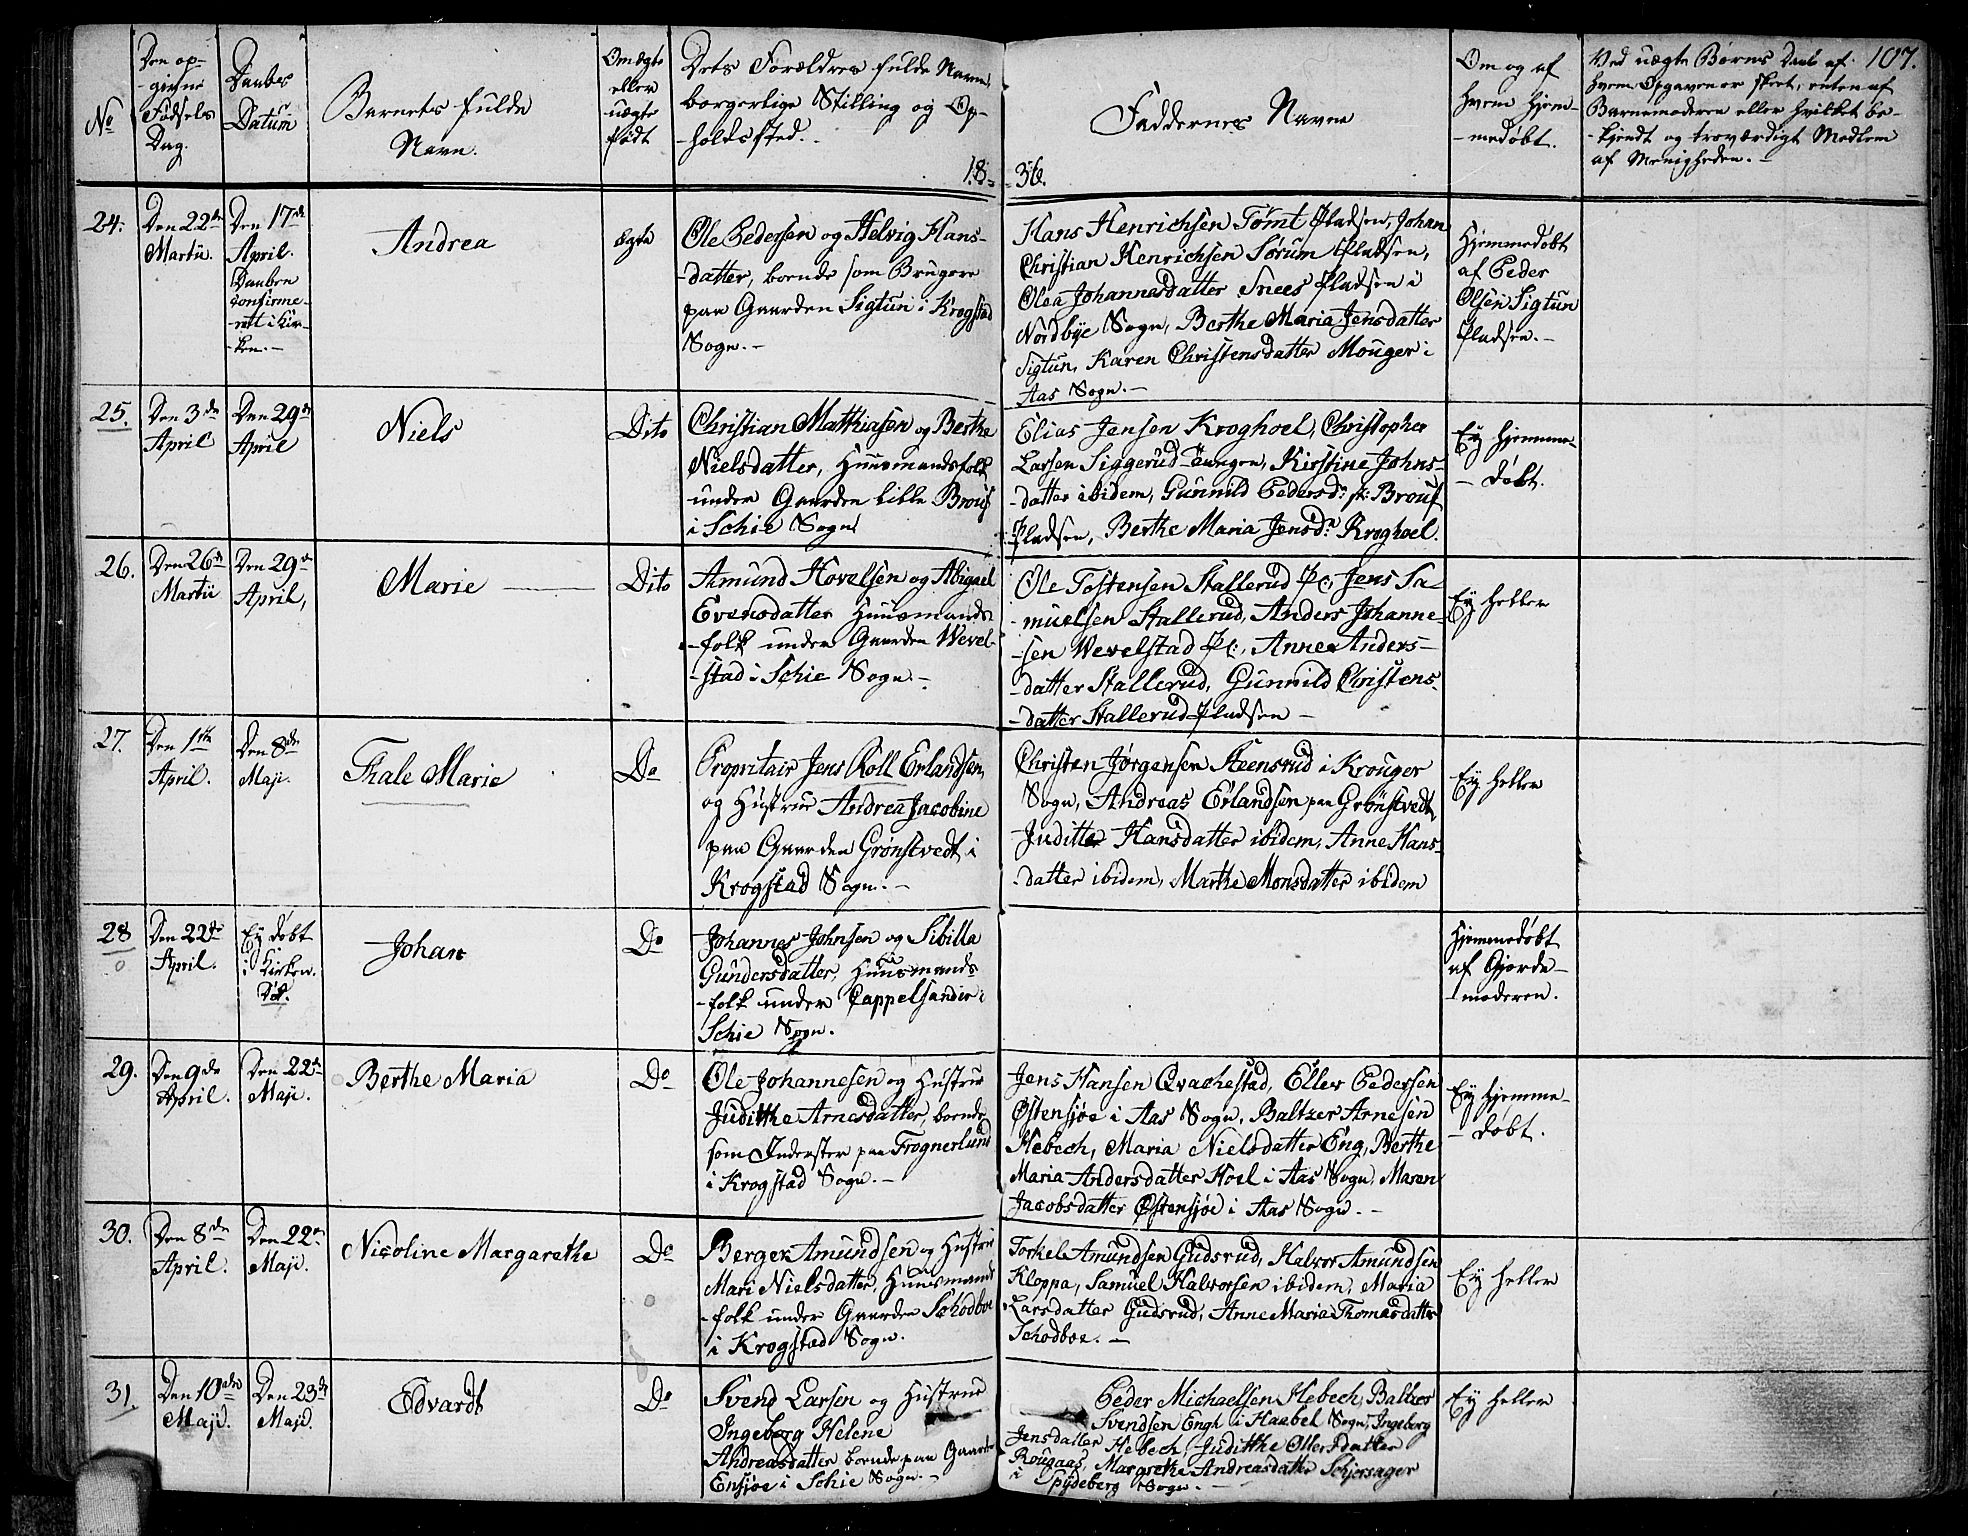 No
Den op-
-givne
Fødsels
Dag.
Daabes
Datum
Barnets fulde
Navn.
Om ægte
eller
uægte
født
Dets Forældres fulde Navne,
borgerlige Stilling og Op-
-holdssted.
18-
-36.
Faddernes Navne
Om og af
hvem hjem-
-medøbt.
Ved uægte Børns Daab af
hvem Opgaven er skeet, enten af
Barnemoderen eller hvilket be-
-kjendt og troværdigt Medlem
af Menigheden.-
107.
24.
Den 22de
Martii.
Den 17de
April.
Daaben
confirme-
-ret i Kir-
-ken.-
Andrea
ægte
Ole Pedersen og Helvig Hans-
-datter, boende som Brugere
paa Gaarden Sigtun i Krogstad
Sogn.-
Hans Henrichsen Tømt Pladsen, Johan
Christian Henrichsen Sørum Pladsen,
Olea Johannesdatter Snees Pladsen i
Nordbye Sogn, Berthe Maria Jensdatter
Sigtun, Karen Christensdatter Mouger i
Aas Sogn.-
Hjemmedøbt
af Peder
Olsen Sigtun
Pladsen.-
25.
Den 3de
April
Den 29de
April
Niels
Dito
Christian Matthiasen og Berthe
Nielsdatter, Huusmandsfolk
under Gaarden Lille Brouf
i Schie Sogn
Elias Jensen Kroghoel, Christopher
Larsen Siggerud-Eungen, Kirstine Johns-
-datter ibidem, Gunnild Pedersdr. st: Brouf
Pladsen, Berthe Maria Jensdr. Kroghoel.
Ey hjemme-
-døbt.
26.
Den 26de
Martii
Den 29de
April,
Marie
Dito
Amund Hovelsen og Abigael
Evensdatter Huusmands-
-folk under Gaarden Wevel-
-stad i Schie Sogn.-
Ole Tostensen Stallerud Pl:, Jens Sa-
-muelsen Stallerud, Anders Johanne-
-sen Wevelstad Pl:, Anne Anders-
-datter Stallerud, Gunnild Christens-
-datter Stallerud Pladsen-
Ey heller
27.
Den 1ste
April.
Den 8de
Maji.
Thale Marie
Do
Propritair Jens Koll Erlandsen,
og Hustrue Andrea Jacobine
paa Gaarden Grønstvedt i
Krogstad Sogn.-
Christen Jørgensen Steensrud i Krouger
Sogn, Andreas Erlandsen paa Grønstvedt,
Juditte Hansdatter ibidem, Anne Hans-
-datter ibidem, Marthe Monsdatter ibidem
Ey heller
28
Den 22de
April.
Ey døbt
i Kirken.
Død.
Johan
Do
Johannes Johnsen og Sibilla
Gundersdatter, Huusmands-
-folk under Cappelsandie i
Schie Sogn.
Hjemmedøbt
af Gjorde-
-moderen.
29.
Den 9de
April.
Den 22de
Maji.
Berthe Maria
Do
Ole Johannesen og Hustrue
Juditthe Arnesdatter, boende
som Inderster paa Frognerlund
i Krogstad Sogn.-
Jens Hansen Qvachestad, Eller Pedersen
Østensjøe i Aas Sogn, Baltzer Arnesen
Hebech, Maria Nielsdatter Eng, Berthe
Maria Andersdatter Hoel i Aas Sogn, Maren
Jacobsdatter Østensjøe i Aas Sogn.-
Ey hjemme-
-døbt.
30.
Den 8de
April.
Den 22de
Maji.
Nicoline Margarethe
Do
Berger Amundsen og Hustrue
Mari Nielsdatter, Huusmands
-folk under Gaarden Schodboe
i Krogstad Sogn.
Torkel Amundsen Gudsrud, Halvor Amundsen
Kloppa, Samuel Halvorsen ibidem, Maria
Larsdatter Gudsrud, Anne Maria Thomasdatter
Schodboe.-
Ey heller
31.
Den 10de
Maji.
Den 23de
Maji.
Edvardt
Do
Svend Larsen og Hustrue
Ingeborg Helene
Andreasdatter boende paa Gaarden
Ensjøe i Schie Sogn.-
Peder Michaelsen Hebech, Baltzer
Svendsen Engh i Haabel Sogn, Ingeborg
Jensdatter Hebech, Juditthe Ollersdatter
Rougaas, Margrethe Andreasdatter Schjersager
i Spydeberg Sogn.-
Ey heller